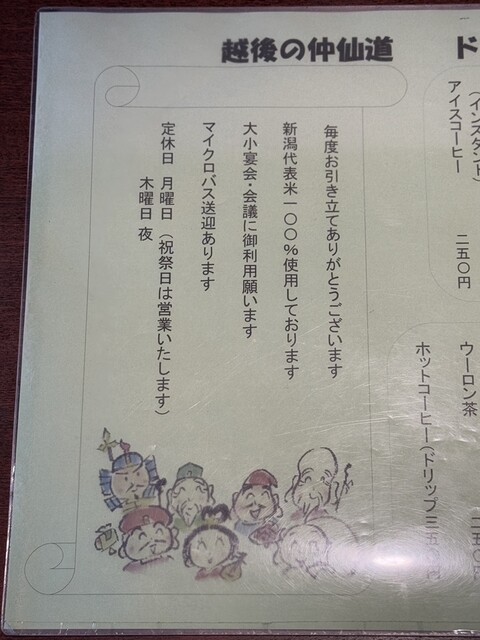 越後の仲仙道
毎度お引き立てありがとうございます
新潟代表米一〇〇%使用しております
大小宴会・会議に御利用願います
マイクロバス送迎あります
定休日 月曜日（祝祭日は営業いたします）
木曜日 夜
ド
（インスタント）
アイスコーヒー 二五〇円
ウーロン茶
ホットコーヒー（ドリップ